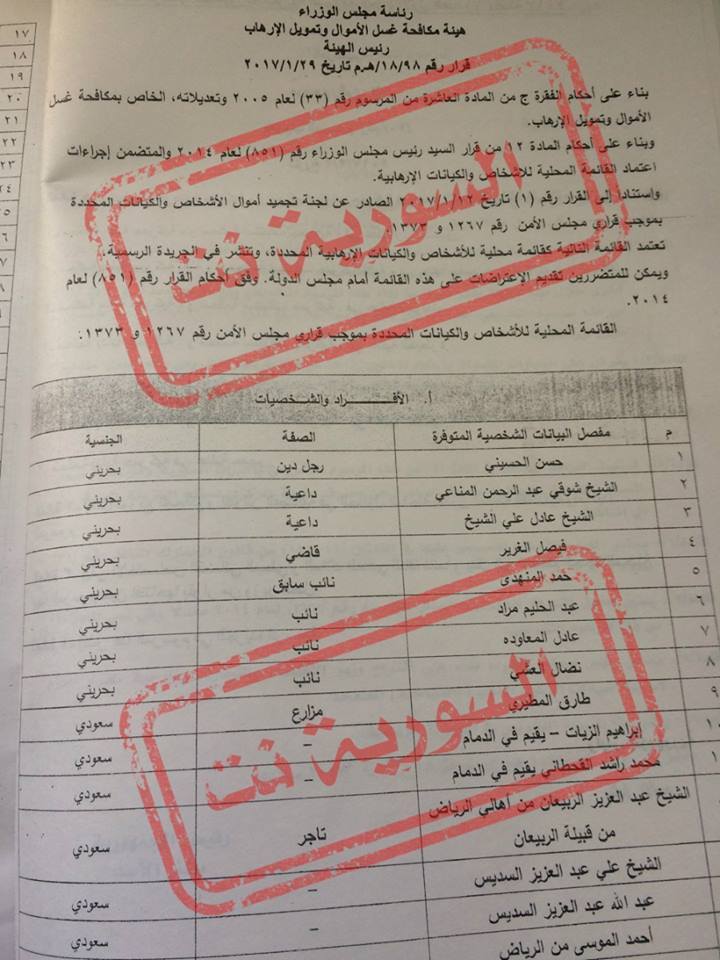 رئاسة مجلس الوزراء
هيئة مكافحة غسل الأموال وتمويل الإرهاب
رئيس الهيئة
قرار رقم ١٨/٩٨/هـ.م تاريخ ٢٠١٧/١/٢٩
بناء على أحكام الفقرة ج من المادة العاشرة من المرسوم رقم (٣٣) لعام ٢٠٠٥ وتعديلاته، الخاص بمكافحة غسل
الأموال وتمويل الإرهاب.
وبناء على أحكام المادة ١٢ من قرار السيد رئيس مجلس الوزراء رقم (٨٥١) لعام ٢٠١٤ والمتضمن إجراءات
اعتماد القائمة المحلية للأشخاص والكيانات الإرهابية.
واستناداً إلى القرار رقم (١) تاريخ ٢٠١٧/١/١٢ الصادر عن لجنة تجميد أموال الأشخاص والكيانات المحددة
بموجب قراري مجلس الأمن رقم ١٢٦٧ و ١٣٧٣.
تعتمد القائمة التالية كقائمة محلية للأشخاص والكيانات الإرهابية المحددة، وتنشر في الجريدة الرسمية.
ويمكن للمتضررين تقديم الإعتراضات على هذه القائمة أمام مجلس الدولة. وفق أحكام القرار رقم (٨٥١) لعام
٢٠١٤.
القائمة المحلية للأشخاص والكيانات المحددة بموجب قراري مجلس الأمن رقم ١٢٦٧ و ١٣٧٣:
أ. الأفـــراد والشخصيات
م مفصل البيانات الشخصية المتوفرة الصفة الجنسية
١ حسن الحسيني رجل دين بحريني
٢ الشيخ شوقي عبد الرحمن المناعي داعية بحريني
٣ الشيخ عادل علي الشيخ داعية بحريني
٤ فيصل الغرير قاضي بحريني
٥ حمد المنهدي نائب سابق بحريني
٦ عبد الحليم مراد نائب بحريني
٧ عادل المعاوده نائب بحريني
٨ نضال نائب بحريني
٩ طارق المطيري مزارع سعودي
إبراهيم الزيات – يقيم في الدمام – سعودي
محمد راشد القحطاني يقيم في الدمام – سعودي
الشيخ عبد العزيز الربيعان من أهالي الرياض
من قبيلة الربيعان تاجر سعودي
الشيخ علي عبد العزيز السديس – سعودي
عبد الله عبد العزيز السديس – سعودي
أحمد الموسى من الرياض – سعودي
السورية نت
السورية نت
١٧
١٨
١٩
٢٠
٢١
٢٢
٢٣